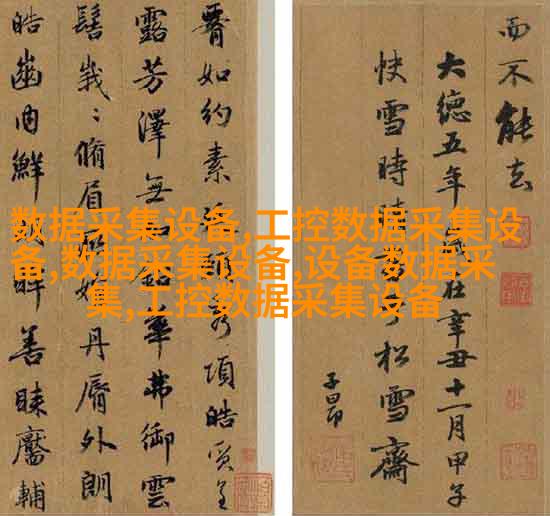 如約素項皓質呈
露芳澤無鉛華弗御雲
髻峩〻脩眉丹脣外朗
皓齒內鮮善睞靨輔
而不能去
大德五年歲在辛丑十一月甲子
快雪時松雪齋
子昂
数据采集设备,工控数据采集设
备,数据采集设备,设备数据采
集,工控数据采集设备